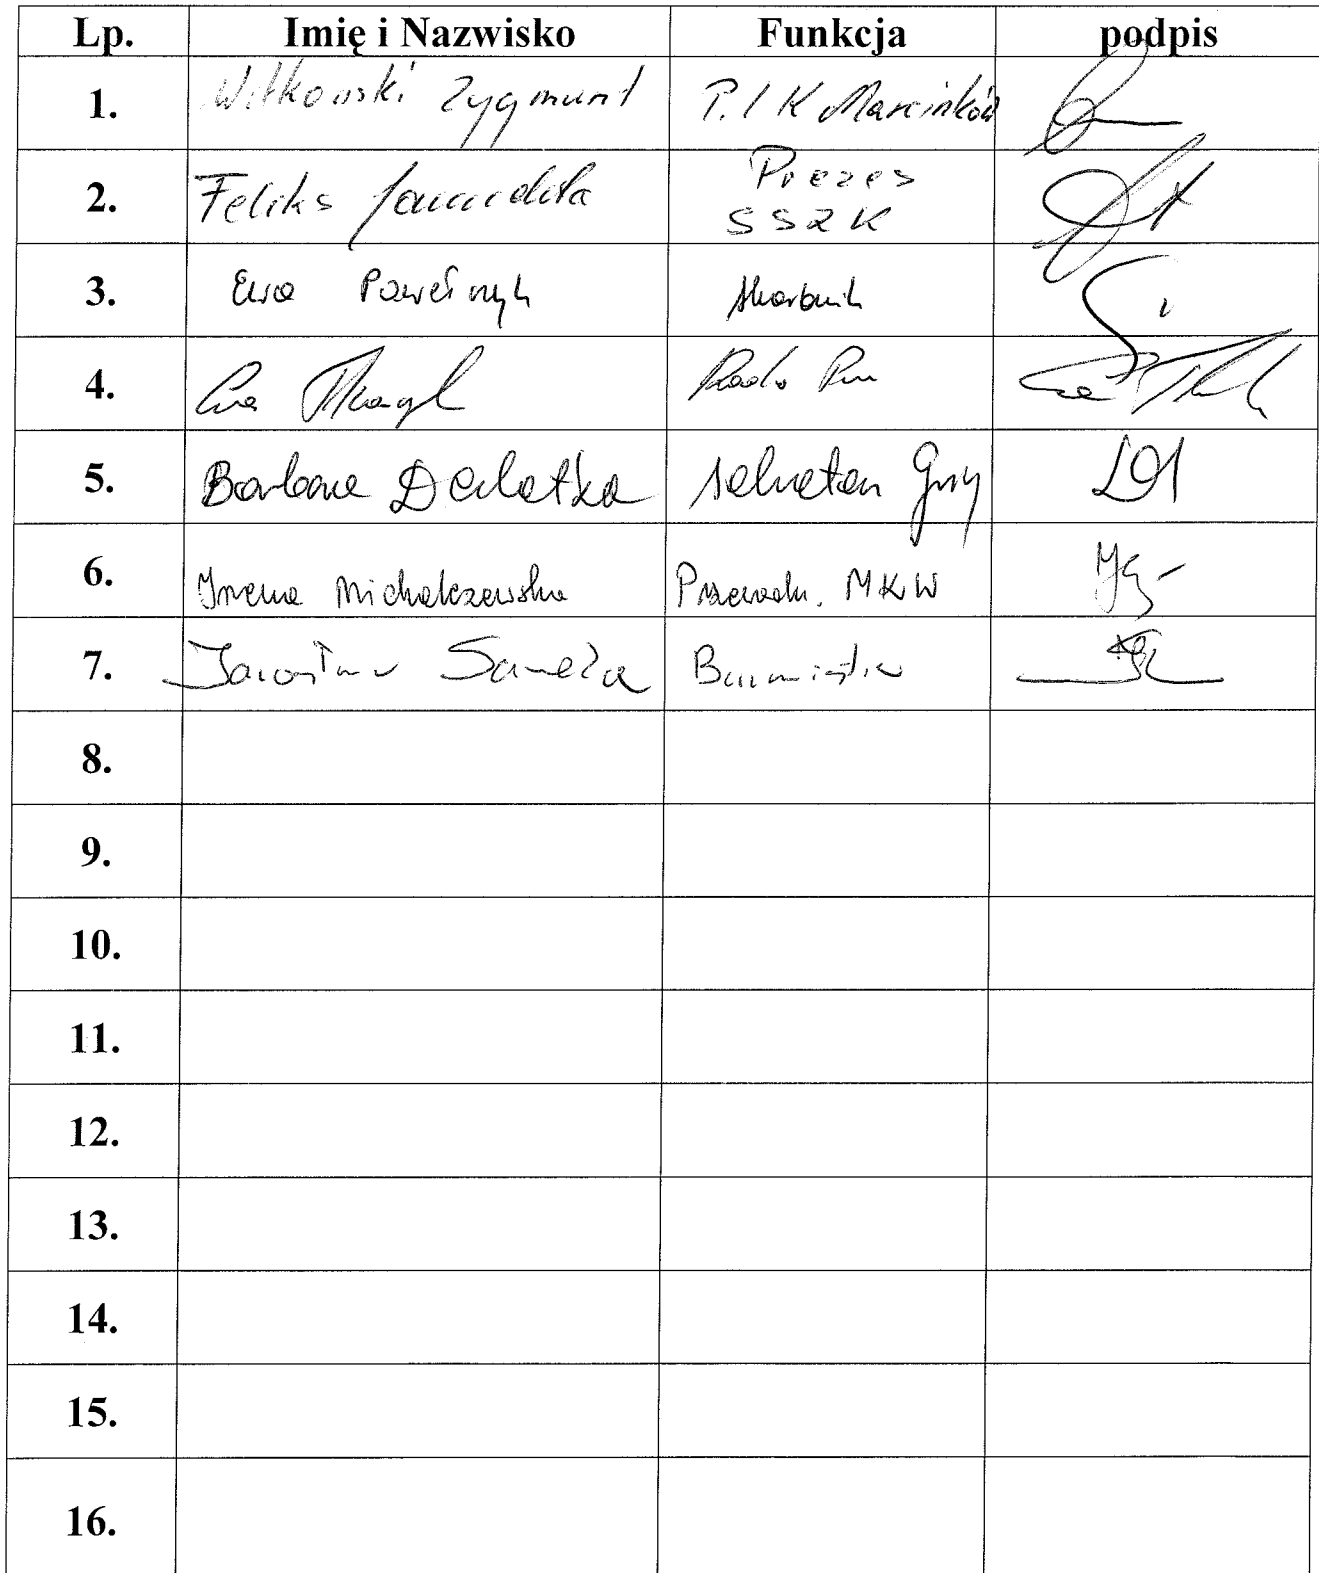 Lp. Imię i Nazwisko Funkcja podpis
1. Witkowski Zygmunt P.I K Marcinków
2. Feliks Prezes
SSZK
3. Ewa Pawełczyk Skarbnik
4. Ewa Rada
5. Barbara Delatka Sekretarz Gminy
6. Irena Michalczewska Przewodn. MKW
7. Jarosław Samela Burmistrz
8.
9.
10.
11.
12.
13.
14.
15.
16.